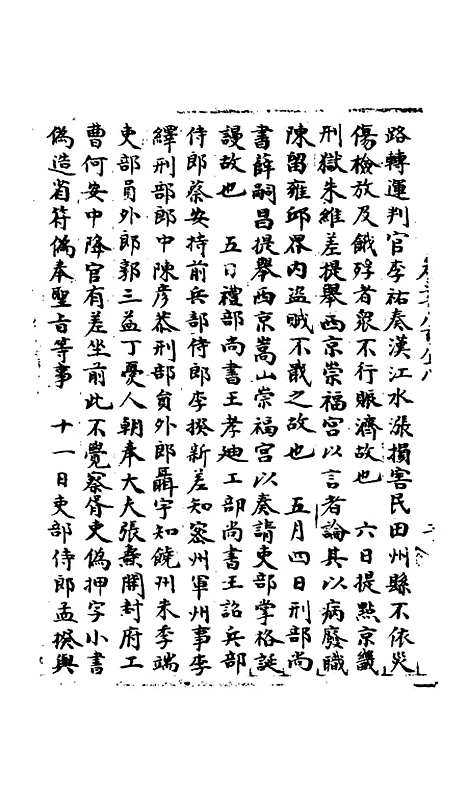 路轉運判官李祐奏漢江水漲損害民田州縣不依災
傷檢放及餓殍者衆不行賑濟故也　六日提點京畿
刑獄朱維差提舉西京崇福宮以言者論其以病廢職
陳留雍邱界内盜賊不戢之故也　五月四日刑部尚
書薛嗣昌提舉西京嵩山崇福宮以奏請吏部掌格誕
謾故也　五日禮部尚書王孝迪工部尚書王詔兵部
侍郎蔡安持前兵部侍郎李揆新差知密州軍州事李
繹刑部郎中陳彦恭刑部員外郎聶宇知饒州朱季端
吏部員外郎郭三益丁憂人朝奉大夫張㮚開封府工
曹何安中降官有差坐前此不覺察胥吏偽押字小書
偽造省符偽奉聖旨等事　十一日吏部侍郎孟揆與